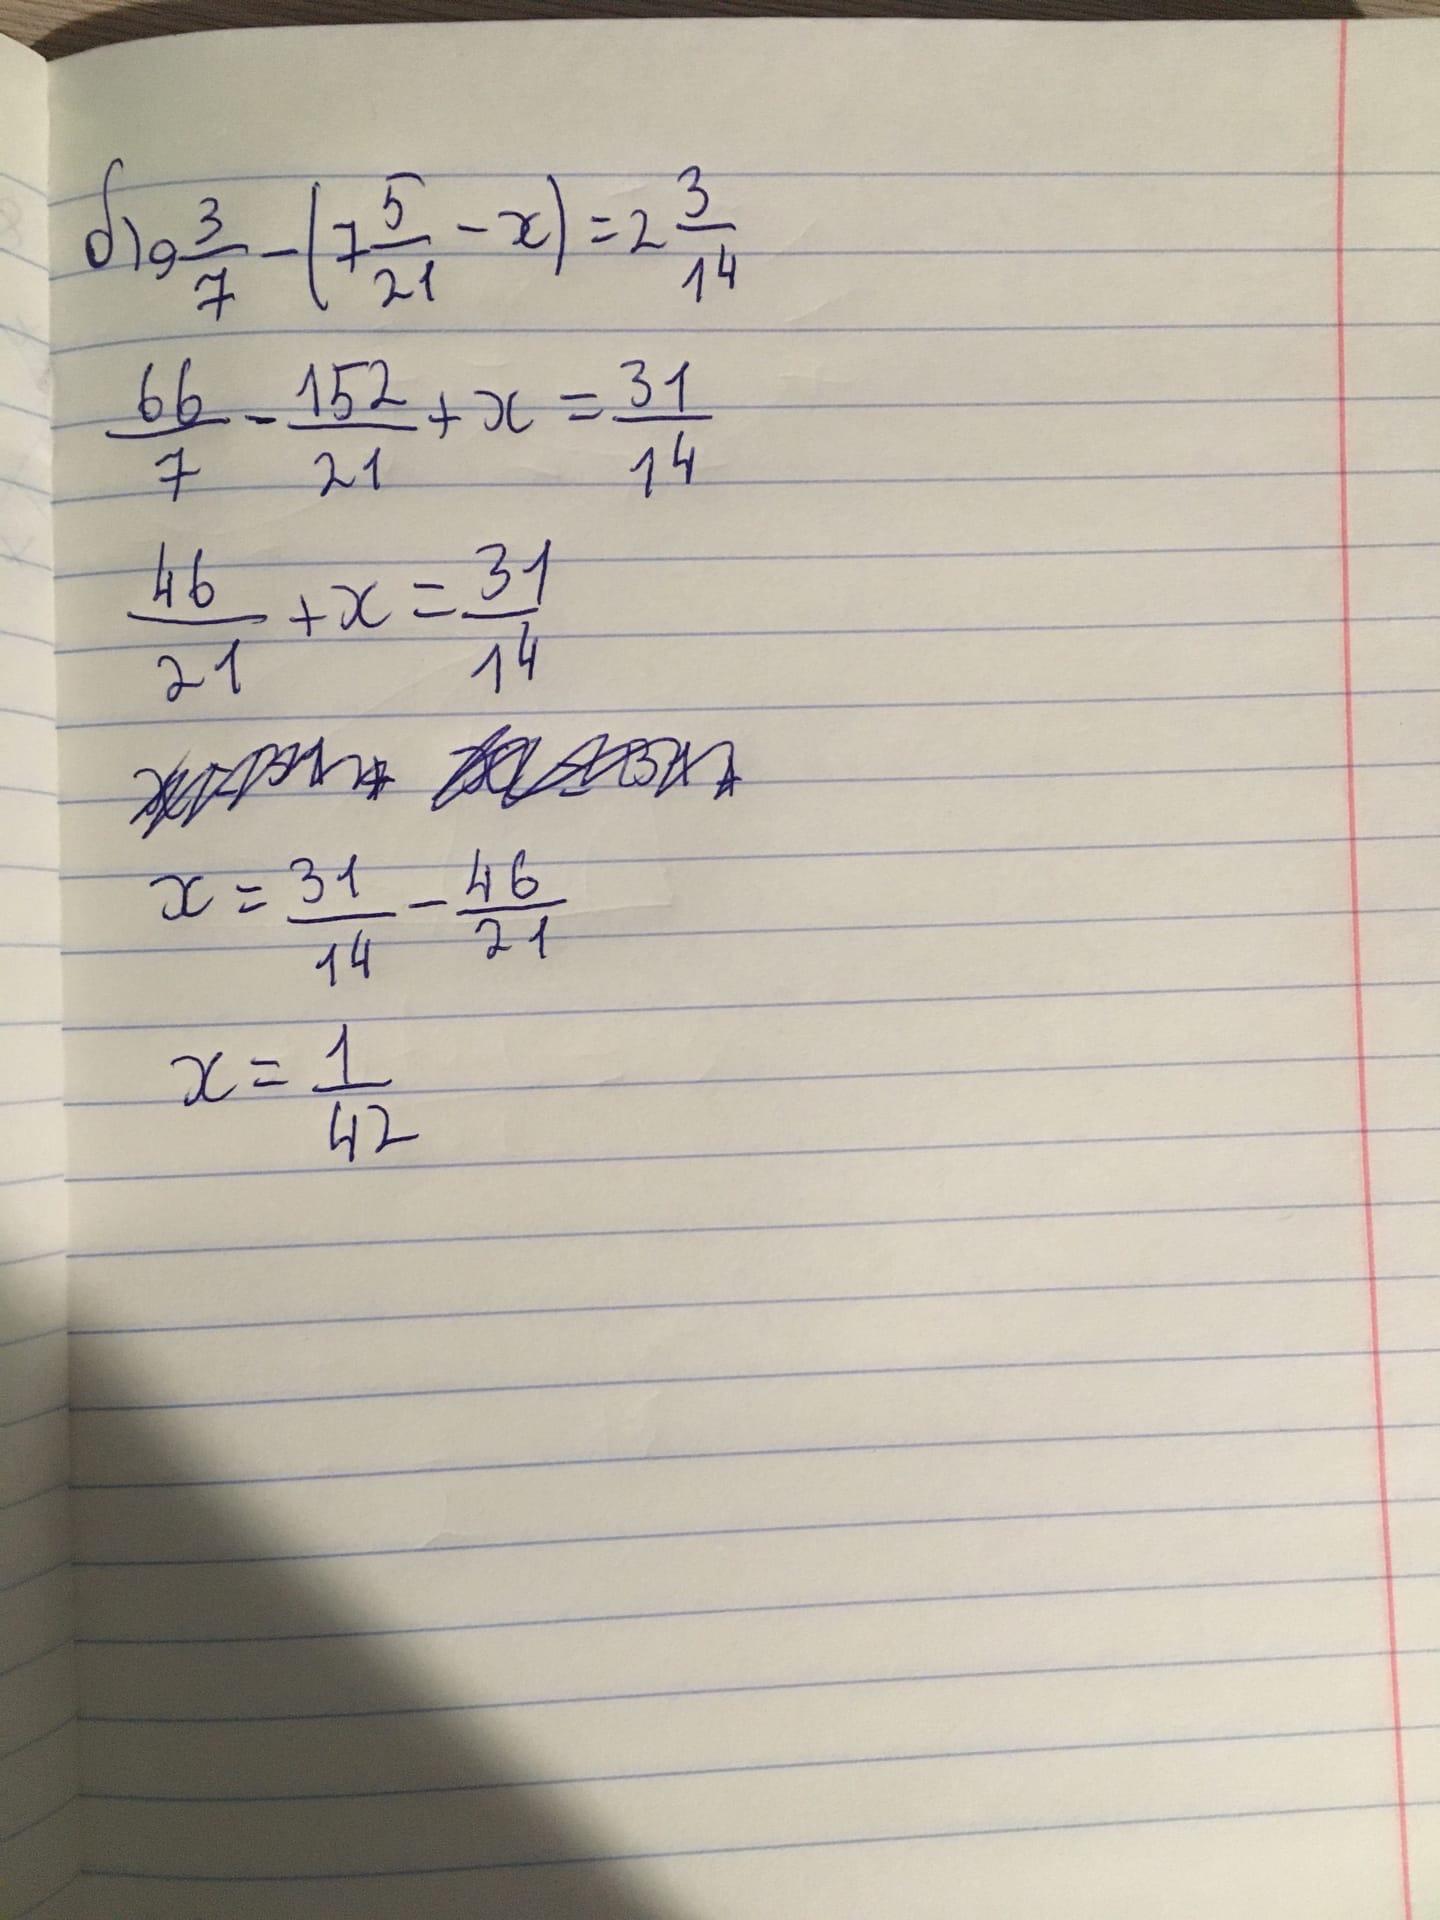 б) 9 3/7 - (7 5/21 - x) = 2 3/14
66/7 - 152/21 + x = 31/14
46/21 + x = 31/14
x = 31/14 - 46/21
x = 1/42